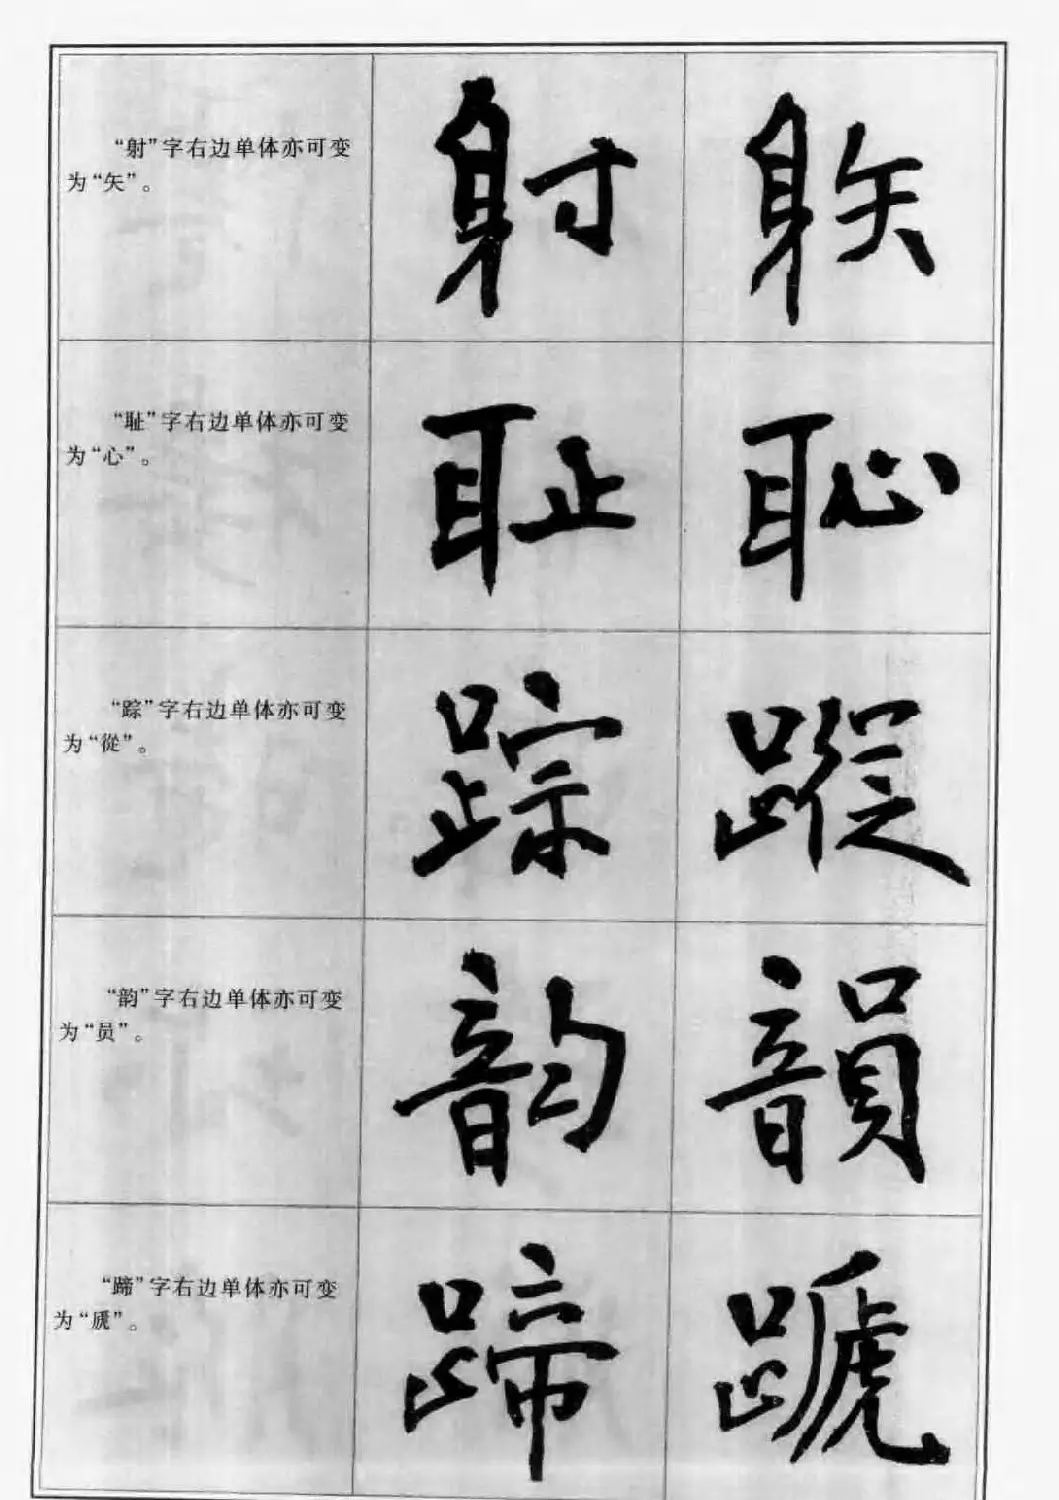 “射”字右边单体亦可变
为“矢”。
射 躲
“耻”字右边单体亦可变
为“心”。
耻 恥
“踪”字右边单体亦可变
为“從”。
踪 蹤
“韵”字右边单体亦可变
为“员”。
韵 韻
“蹄”字右边单体亦可变
为“虒”。
蹄 蹏